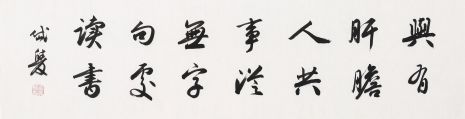 與有
肝膽
人共
事從
無字
句處
读書